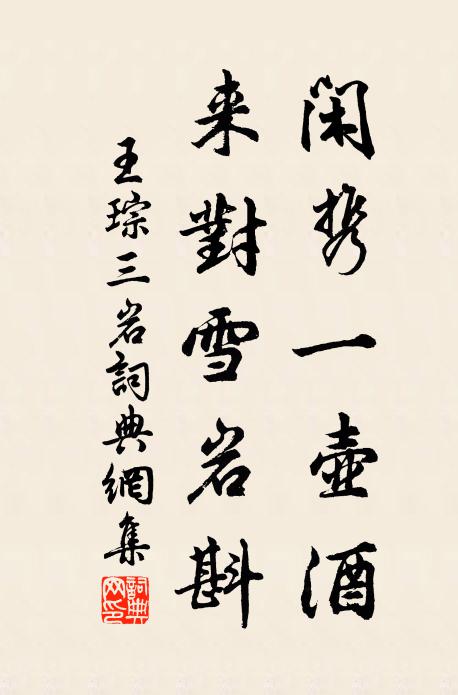 闲携一壶酒
来對雪岩斟
王琮三岩詞典網集
詞典网印